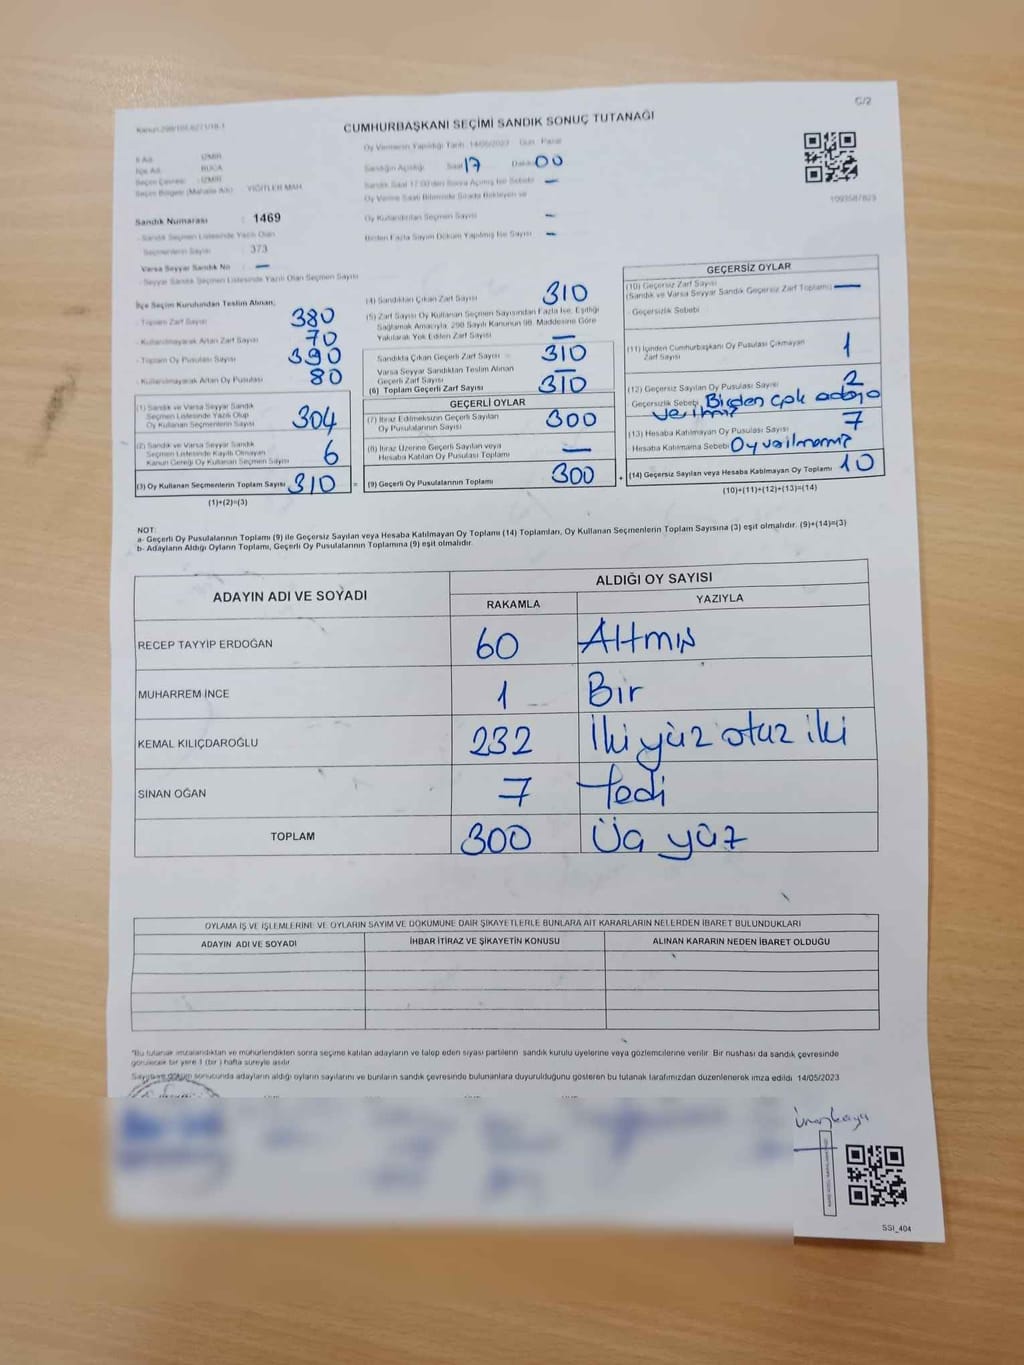 C/2
Kanun:298/105
CUMHURBAŞKANI SEÇİMİ SANDIK SONUÇ TUTANAĞI
İl Adı : İZMİR
İlçe Adı : BUCA
Seçim Çevresi : İZMİR
Seçim Bölgesi (Mahalle Adı) : YİĞİTLER MAH.
Sandık Numarası : 1469
- Sandık Seçmen Listesinde Yazılı Olan
Seçmenlerin Sayısı : 373
Varsa Seyyar Sandık No : —
- Seyyar Sandık Seçmen Listesinde Yazılı Olan Seçmen Sayısı
Oy Vermenin Yapıldığı Tarih: 14/05/2023 Gün: Pazar
Sandığın Açıldığı Saat 17 Dakika 00
Sandık Saat 17:00'den Sonra Açılmış İse Sebebi —
Oy Verme Saati Bitiminde Sırada Bekleyen ve
Oy Kullandırılan Seçmen Sayısı —
Birden Fazla Sayım Döküm Yapılmış İse Sayısı —
1093587823
İlçe Seçim Kurulundan Teslim Alınan;
- Toplam Zarf Sayısı 380
- Kullanılmayarak Artan Zarf Sayısı 70
- Toplam Oy Pusulası Sayısı 390
- Kullanılmayarak Artan Oy Pusulası 80
(1) Sandık ve Varsa Seyyar Sandık
Seçmen Listesinde Yazılı Olup
Oy Kullanan Seçmenlerin Sayısı 304
(2) Sandık ve Varsa Seyyar Sandık
Seçmen Listesinde Kayıtlı Olmayan
Kanun Gereği Oy Kullanan Seçmen Sayısı 6
(3) Oy Kullanan Seçmenlerin Toplam Sayısı 310 =
(1)+(2)=(3)
(4) Sandıktan Çıkan Zarf Sayısı 310
(5) Zarf Sayısı Oy Kullanan Seçmen Sayısından Fazla İse, Eşitliği
Sağlamak Amacıyla, 298 Sayılı Kanunun 98. Maddesine Göre
Yakılarak Yok Edilen Zarf Sayısı —
Sandıkta Çıkan Geçerli Zarf Sayısı 310
Varsa Seyyar Sandıktan Teslim Alınan
Geçerli Zarf Sayısı —
(6) Toplam Geçerli Zarf Sayısı 310
GEÇERLİ OYLAR
(7) İtiraz Edilmeksizin Geçerli Sayılan
Oy Pusulalarının Sayısı 300
(8) İtiraz Üzerine Geçerli Sayılan veya
Hesaba Katılan Oy Pusulası Toplamı —
(9) Geçerli Oy Pusulalarının Toplamı 300 +
GEÇERSİZ OYLAR
(10) Geçersiz Zarf Sayısı
(Sandık ve Varsa Seyyar Sandık Geçersiz Zarf Toplamı) —
Geçersizlik Sebebi
(11) İçinden Cumhurbaşkanı Oy Pusulası Çıkmayan
Zarf Sayısı 1
(12) Geçersiz Sayılan Oy Pusulası Sayısı 2
Geçersizlik Sebebi Birden çok adaya
verilmiş
(13) Hesaba Katılmayan Oy Pusulası Sayısı 7
Hesaba Katılmama Sebebi
(14) Geçersiz Sayılan veya Hesaba Katılmayan Oy Toplamı 10
(10)+(11)+(12)+(13)=(14)
NOT:
a- Geçerli Oy Pusulalarının Toplamı (9) ile Geçersiz Sayılan veya Hesaba Katılmayan Oy Toplamı (14) Toplamları, Oy Kullanan Seçmenlerin Toplam Sayısına (3) eşit olmalıdır. (9)+(14)=(3)
b- Adayların Aldığı Oyların Toplamı, Geçerli Oy Pusulalarının Toplamına (9) eşit olmalıdır.
ADAYIN ADI VE SOYADI
ALDIĞI OY SAYISI
RAKAMLA YAZIYLA
RECEP TAYYİP ERDOĞAN 60 Altmış
MUHARREM İNCE 1 Bir
KEMAL KILIÇDAROĞLU 232 İki yüz otuz iki
SİNAN OĞAN 7 Yedi
TOPLAM 300 Üç yüz
OYLAMA İŞ VE İŞLEMLERİNE VE OYLARIN SAYIM VE DÖKÜMÜNE DAİR ŞİKAYETLERLE BUNLARA AİT KARARLARIN NELERDEN İBARET BULUNDUKLARI
ADAYIN ADI VE SOYADI İHBAR İTİRAZ VE ŞİKAYETİN KONUSU ALINAN KARARIN NEDEN İBARET OLDUĞU
*Bu tutanak imzalandıktan ve mühürlendikten sonra seçime katılan adayların ve talep eden siyasi partilerin sandık kurulu üyelerine veya gözlemcilerine verilir. Bir nüshası da sandık çevresinde
görülecek bir yere 1 (bir) hafta süreyle asılır.
Sayım ve döküm sonucunda adayların aldığı oyların sayılarını ve bunların sandık çevresinde bulunanlara duyurulduğunu gösteren bu tutanak tarafımızdan düzenlenerek imza edildi. 14/05/2023
SSI_404